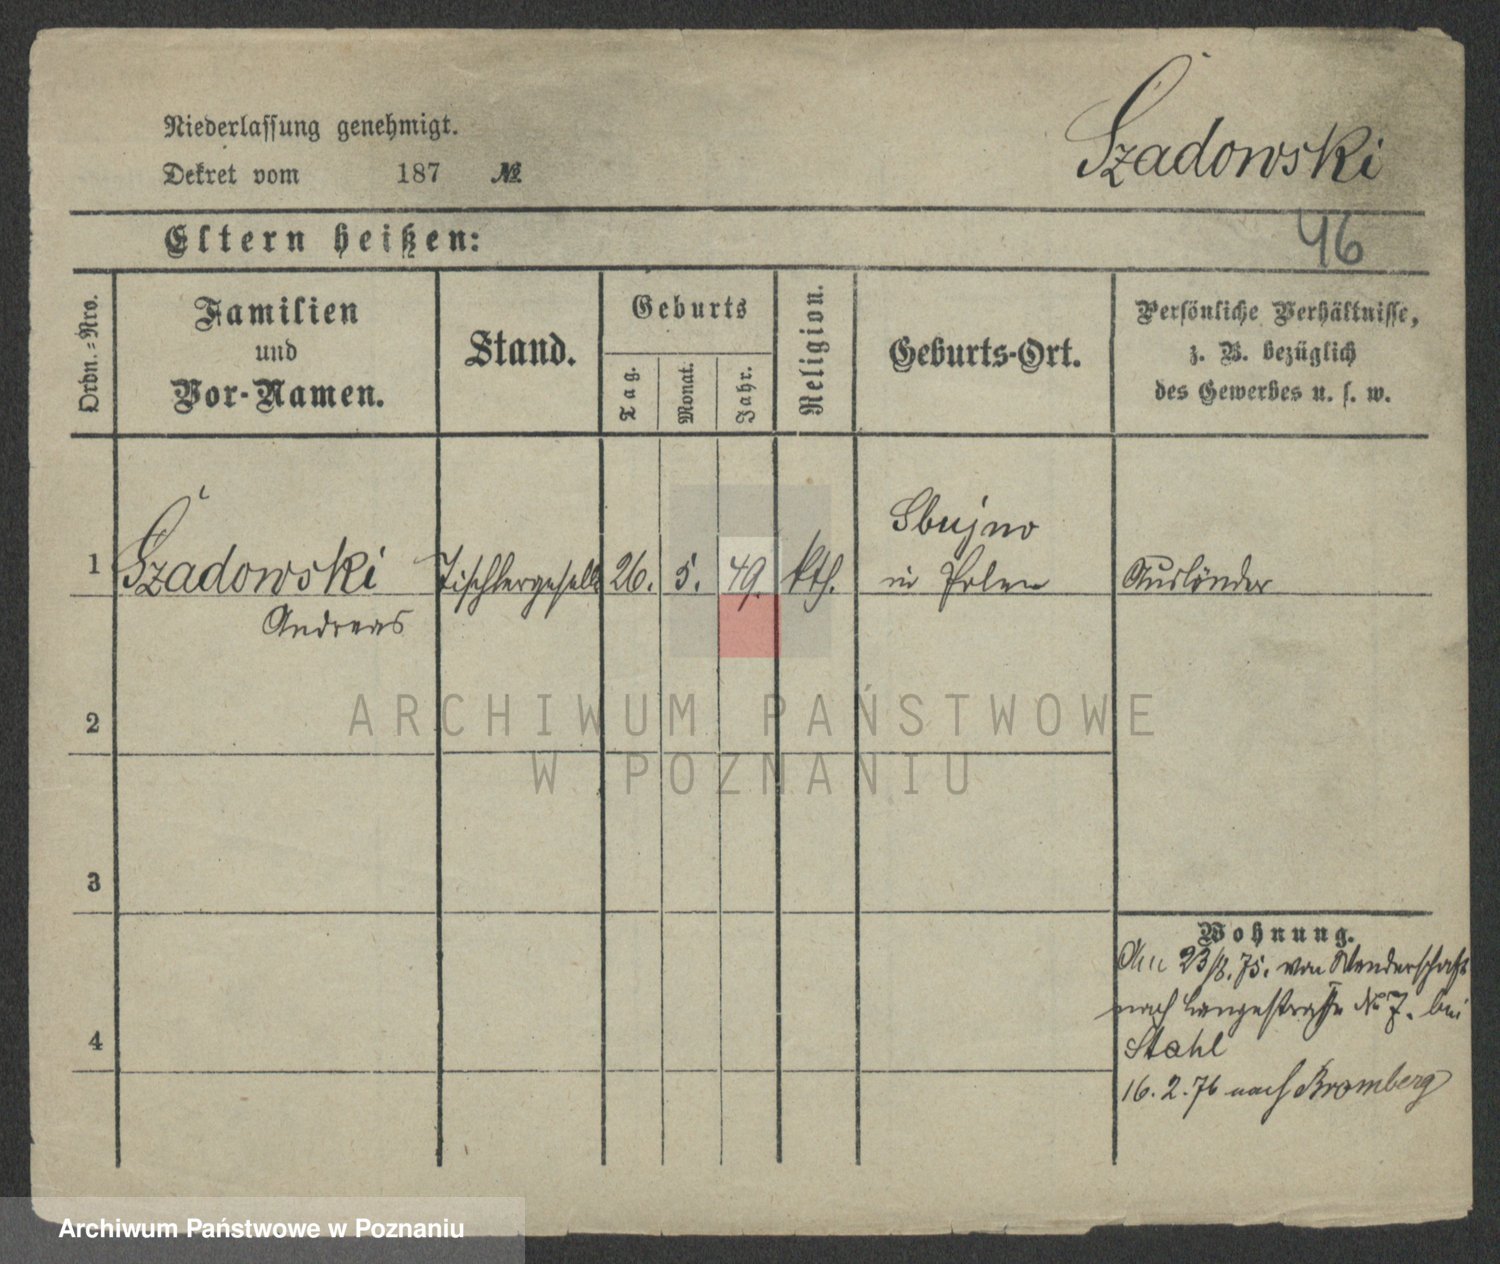 Szadowski
Niederlassung genehmigt.
Dekret vom 187 №
46
Eltern heißen:
Ordn.-Nro.
Familien
und
Vor-Namen.
Stand.
Geburts
Tag.
Monat.
Jahr.
Religion.
Geburts-Ort.
Persönliche Verhältnisse,
z. B. bezüglich
des Gewerbes u. s. w.
1 Szadowski Tischlergeselle 26. 5. 49. kth.
Andreas
Sbujno
in Polen
Ausländer
2
3
4
Wohnung.
Am 23/8.75. von Wanderschaft
nach Langestraße No 7. bei
Stahl
16.2.76 nach Bromberg
ARCHIWUM PAŃSTWOWE
W POZNANIU
Archiwum Państwowe w Poznaniu